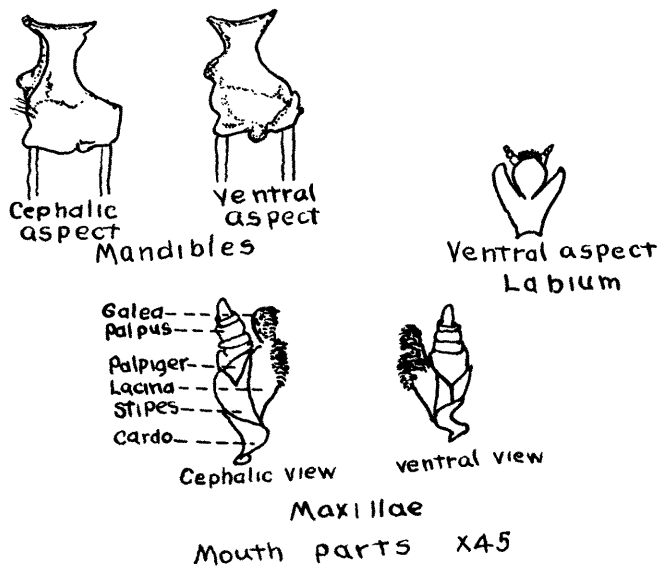 Cephalic
aspect
Ventral
aspect
Mandibles
Ventral aspect
Labium
Galea
Palpus
Palpiger
Lacina
Stipes
Cardo
Cephalic view
ventral view
Maxillae
Mouth parts X45